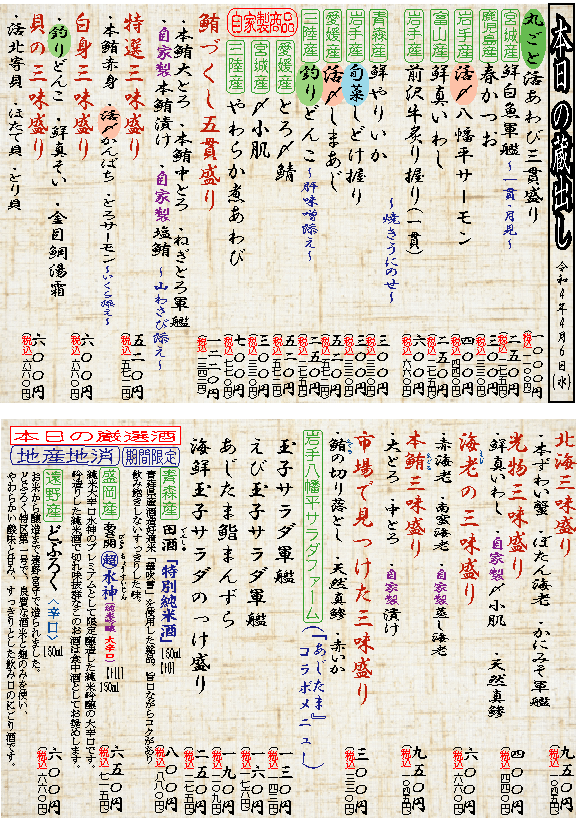 本日の蔵出し 令和4年4月6日(水)
丸ごと活あわび三貫盛り 一〇〇〇円 (税込)一一〇〇円
宮城産 鮮白魚軍艦 ~一貫・月見~ 二五〇円 (税込)二七五円
鹿児島産 春かつお 三〇〇円 (税込)三三〇円
岩手産 活〆八幡平サーモン 四〇〇円 (税込)四四〇円
富山産 鮮真いわし
岩手産 前沢牛炙り握り(一貫) 六〇〇円 (税込)六六〇円
青森産 鮮やりいか 三〇〇円 (税込)三三〇円
~焼きうにのせ~
岩手産 旬菜しどけ握り
愛媛産 活〆しまあじ
三陸産 釣りどんこ ~肝味噌添え~
自家製商品
愛媛産 とろ〆鯖
宮城産 〆小肌
三陸産 やわらか煮あわび 七〇〇円 (税込)七七〇円
鮪づくし五貫盛り
・本鮪大とろ ・本鮪中とろ ・ねぎとろ軍艦
・自家製本鮪漬け ・自家製塩鮪 ~山わさび添え~
特選三味盛り 五二〇円 (税込)五七二円
・本鮪赤身 ・活〆かんぱち ・とろサーモン~いくら添え~
白身三味盛り 六〇〇円 (税込)六六〇円
・釣りどんこ ・鮮真そい ・金目鯛湯霜
貝の三味盛り 六〇〇円 (税込)六六〇円
・活北寄貝 ・ほたて貝 ・とり貝
北海三味盛り 九五〇円 (税込)一〇四五円
・本ずわい蟹 ・ぼたん海老 ・かにみそ軍艦
光物三味盛り 四〇〇円 (税込)四四〇円
・鮮真いわし ・自家製〆小肌 ・天然真鯵
海老の三味盛り 六〇〇円 (税込)六六〇円
・赤海老 ・南蛮海老 ・自家製蒸し海老
本鮪三味盛り 九五〇円 (税込)一〇四五円
・大とろ ・中とろ ・自家製漬け
市場で見つけた三味盛り 三〇〇円 (税込)三三〇円
・鮪の切り落とし ・天然真鯵 ・赤いか
岩手八幡平サラダファーム(『あじたま』コラボメニュー)
玉子サラダ軍艦 一三〇円 (税込)一四三円
えび玉子サラダ軍艦 一六〇円 (税込)一七六円
あじたま鮨まんずら 一九〇円 (税込)二〇九円
海鮮玉子サラダのっけ盛り 二五〇円 (税込)二七五円
本日の厳選酒
地産地消 期間限定
青森産 田酒「特別純米酒」 180ml 八〇〇円 (税込)八八〇円
青森県産酒造好適米「華吹雪」を使用した銘品。旨口ながらコクがあり
飲み飽きしないすっきりした味。
盛岡産 あさ開 超水神(純米吟醸 大辛口) 150ml 六五〇円 (税込)七一五円
純米大辛口水神のプレミアムとして限定醸造した純米吟醸の大辛口です。
吟造りした純米酒で切れ味抜群なこのお酒は食中酒としてお奨めします。
遠野産 どぶろく <辛口> 150ml 六〇〇円 (税込)六六〇円
お米から醸造まで遠野宮守で造られました。
どぶろく特区第一号で、良質な酒米と麹のみを使い、
やわらかい酸味と甘み、すっきりとした飲み口のにごり酒です。